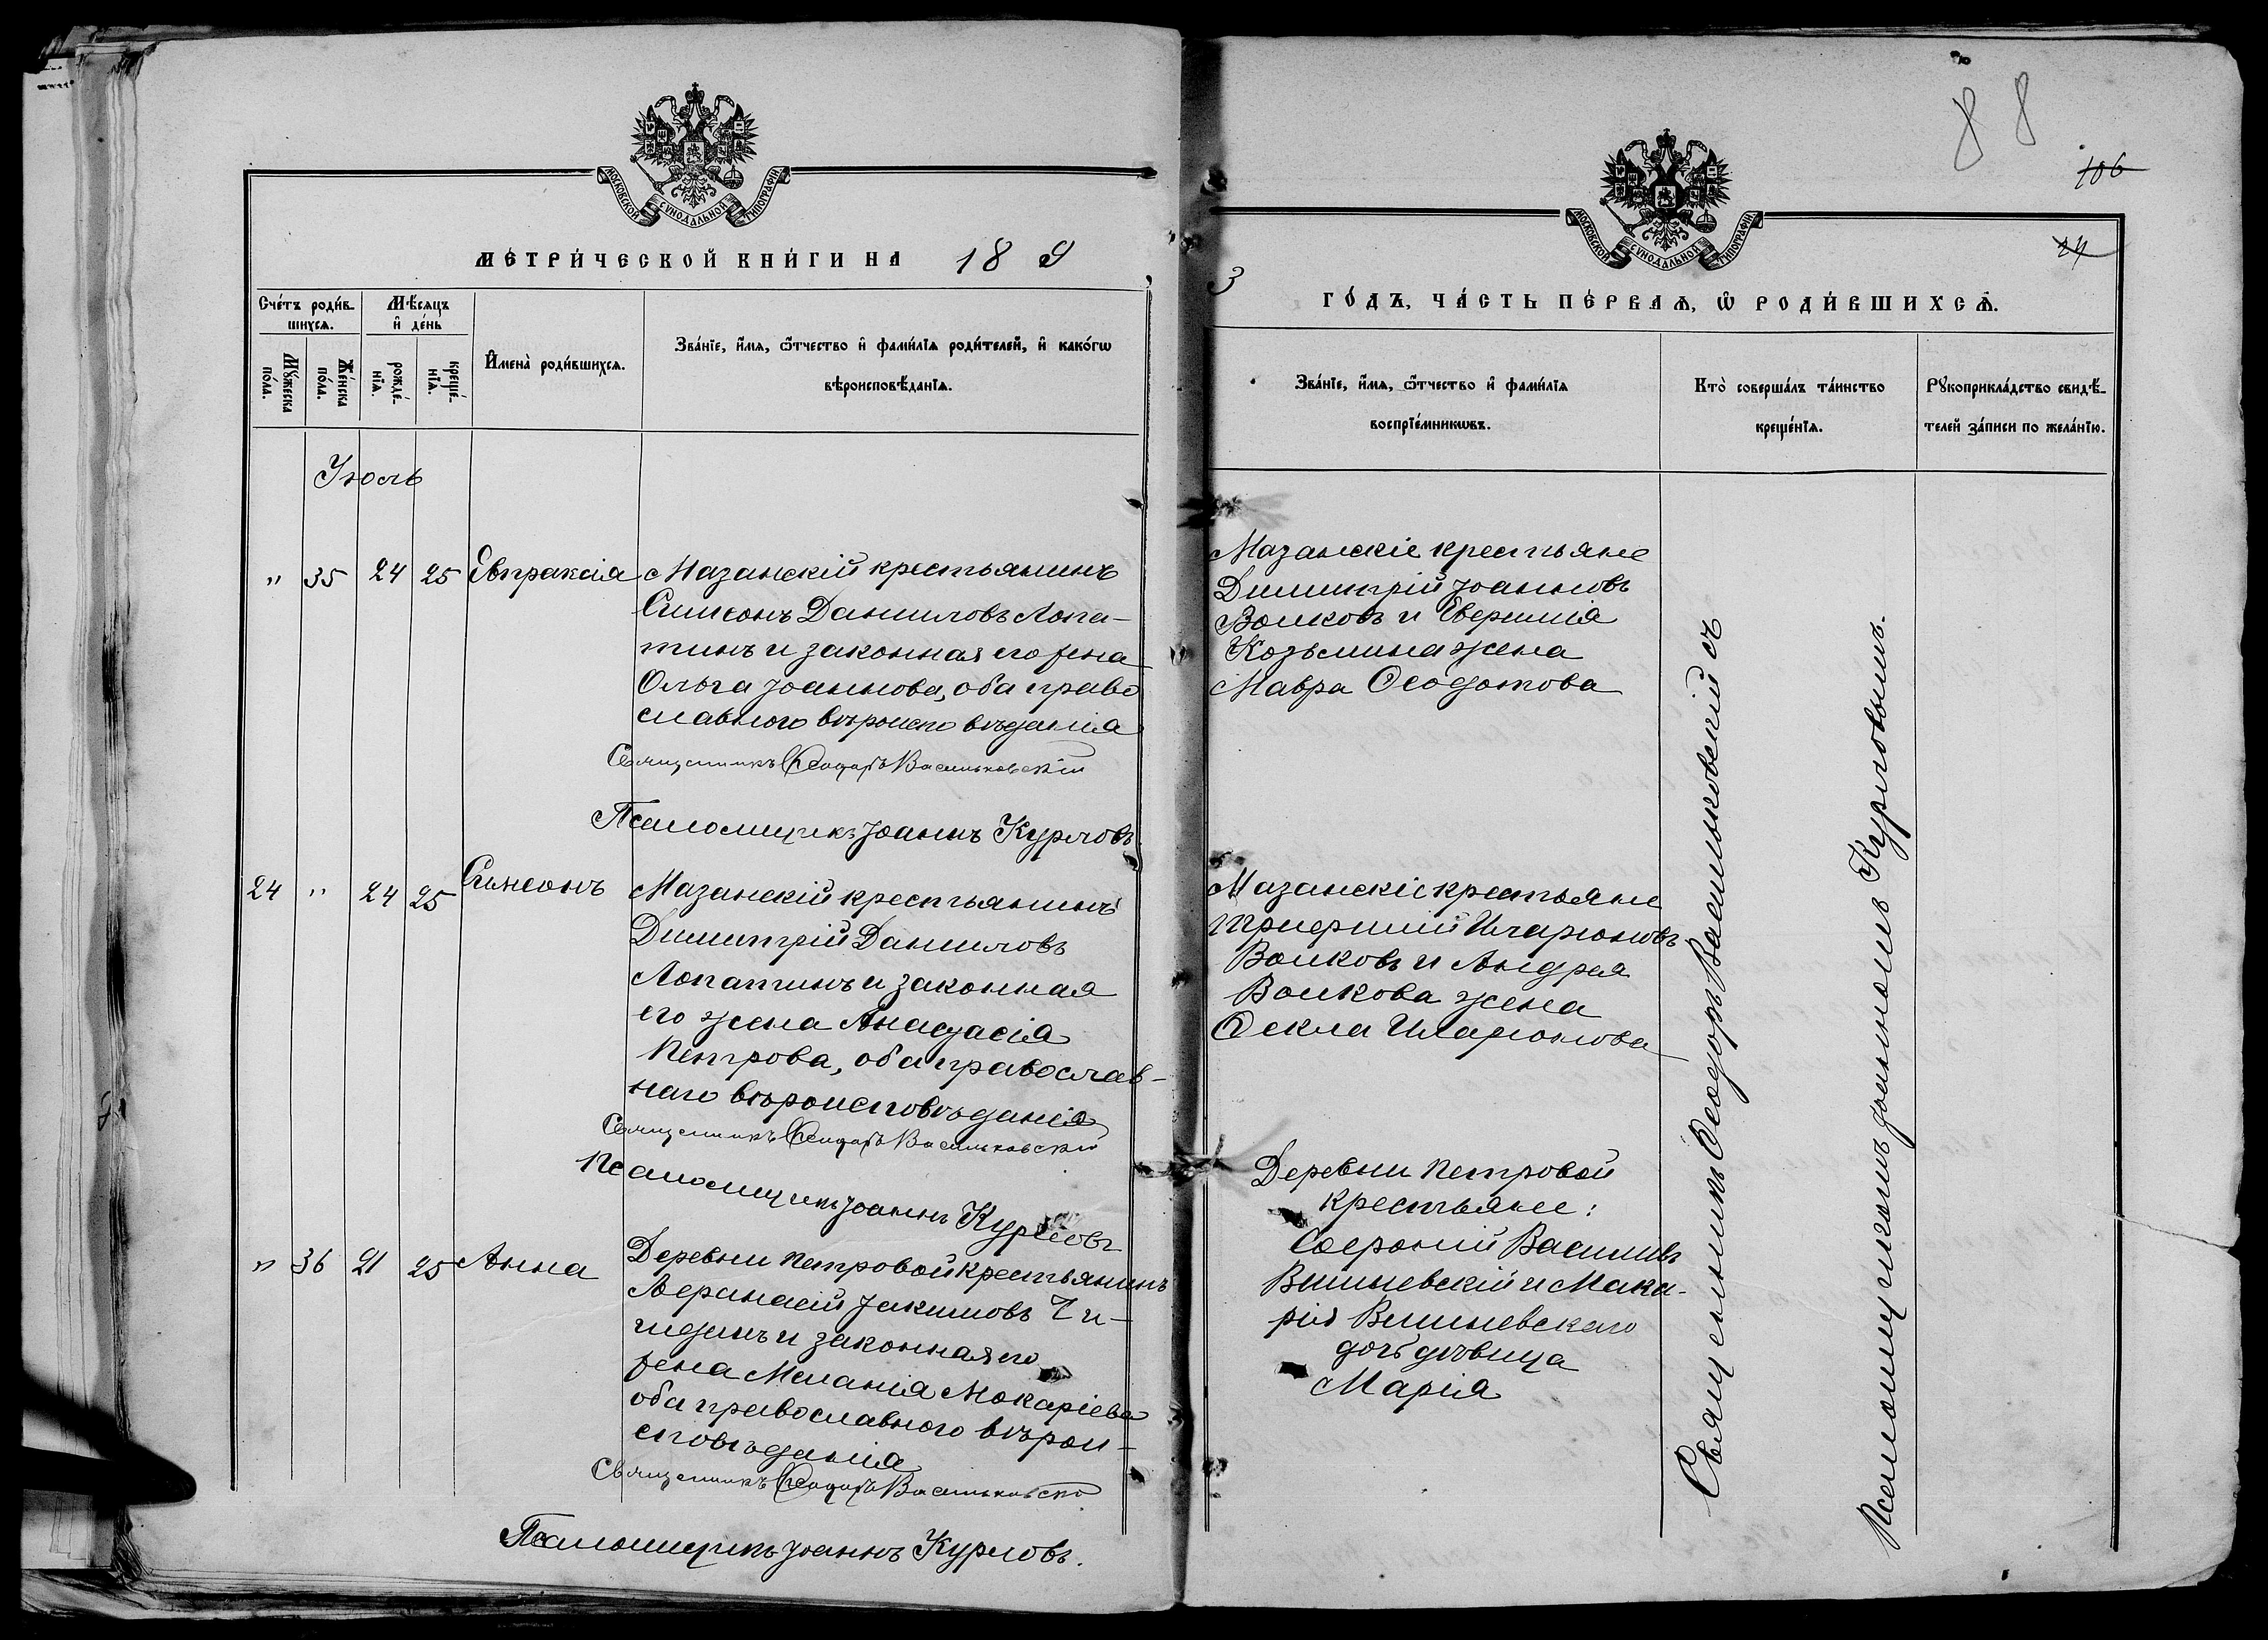 МОСКОВСКОЙ СѴНОДАЛЬНОЙ ТИПОГРАФІИ
МЕТРИ́ЧЕСКОЙ КНИ́ГИ НА 189
Сче́тъ роди́в-
шихсѧ.
Мѣ́сѧцъ
и҆ де́нь
Мꙋ́жеска
по́ла.
Же́нска
по́ла.
рожде́-
нїѧ.
креще́-
нїѧ.
И҆мена̀ роди́вшихсѧ.
Зва́нїе, и҆́мѧ, ѻ҆́тчество и҆ фами́лїѧ роди́телей, и҆ како́гѡ
вѣроисповѣ́данїѧ.
Іюль
" 35 24 25 Евпраксія
Мазанскій крестьянинъ
Симеонъ Даниловъ Лопа-
тинъ и законная его жена
Ольга Іоаннова, оба право
славного вѣроисповѣданія
Священникъ Ѳеодоръ Васильковскій
Псаломщикъ Іоаннъ Курловъ
24 " 24 25 Симеонъ
Мазанскій крестьянинъ
Димитрій Даниловъ
Лопатинъ и законная
его жена Анастасія
Петрова, оба православ-
наго вѣроисповѣданія
Священникъ Ѳеодоръ Васильковскій
Псаломщикъ Іоаннъ Курловъ
" 36 21 25 Анна
Деревни Петровой крестьянинъ
Аѳанасій Іакимовъ
и законная его
жена Меланія Макаріева
оба православного вѣрои-
сповѣданія
Священникъ Ѳеодоръ Васильковскій
Псаломщикъ Іоаннъ Курловъ.
88
106
24
МОСКОВСКОЙ СѴНОДАЛЬНОЙ ТИПОГРАФІИ
3 ГО́ДЪ, ЧА́СТЬ ПЕ́РВАѦ, Ѡ҆ РОДИ́ВШИХСѦ.
Зва́нїе, и҆́мѧ, ѻ҆́тчество и҆ фами́лїѧ
воспрїе́мникѡвъ.
Кто̀ соверша́лъ та́инство
креще́нїѧ.
Рꙋкоприкла́дство свидѣ́-
телей за́писи по жела́нїю.
Мазанскіе крестьяне
Димитрій Іоанновъ
Волковъ и Евфимія
Козьмина жена
Мавра Ѳеодотова
Мазанскіе крестьяне
Трифилій Иларіоновъ
Волковъ и Андрея
Волкова жена
Ѳекла Иларіонова
Деревни Петровой
крестьяне:
Софроній Василивъ
Вишневскій и Мака-
рія Вишневскаго
дочь дѣвица
Марія
Священникъ Ѳеодоръ Васильковскій съ
Псаломщикомъ Іоанномъ Курловымъ.